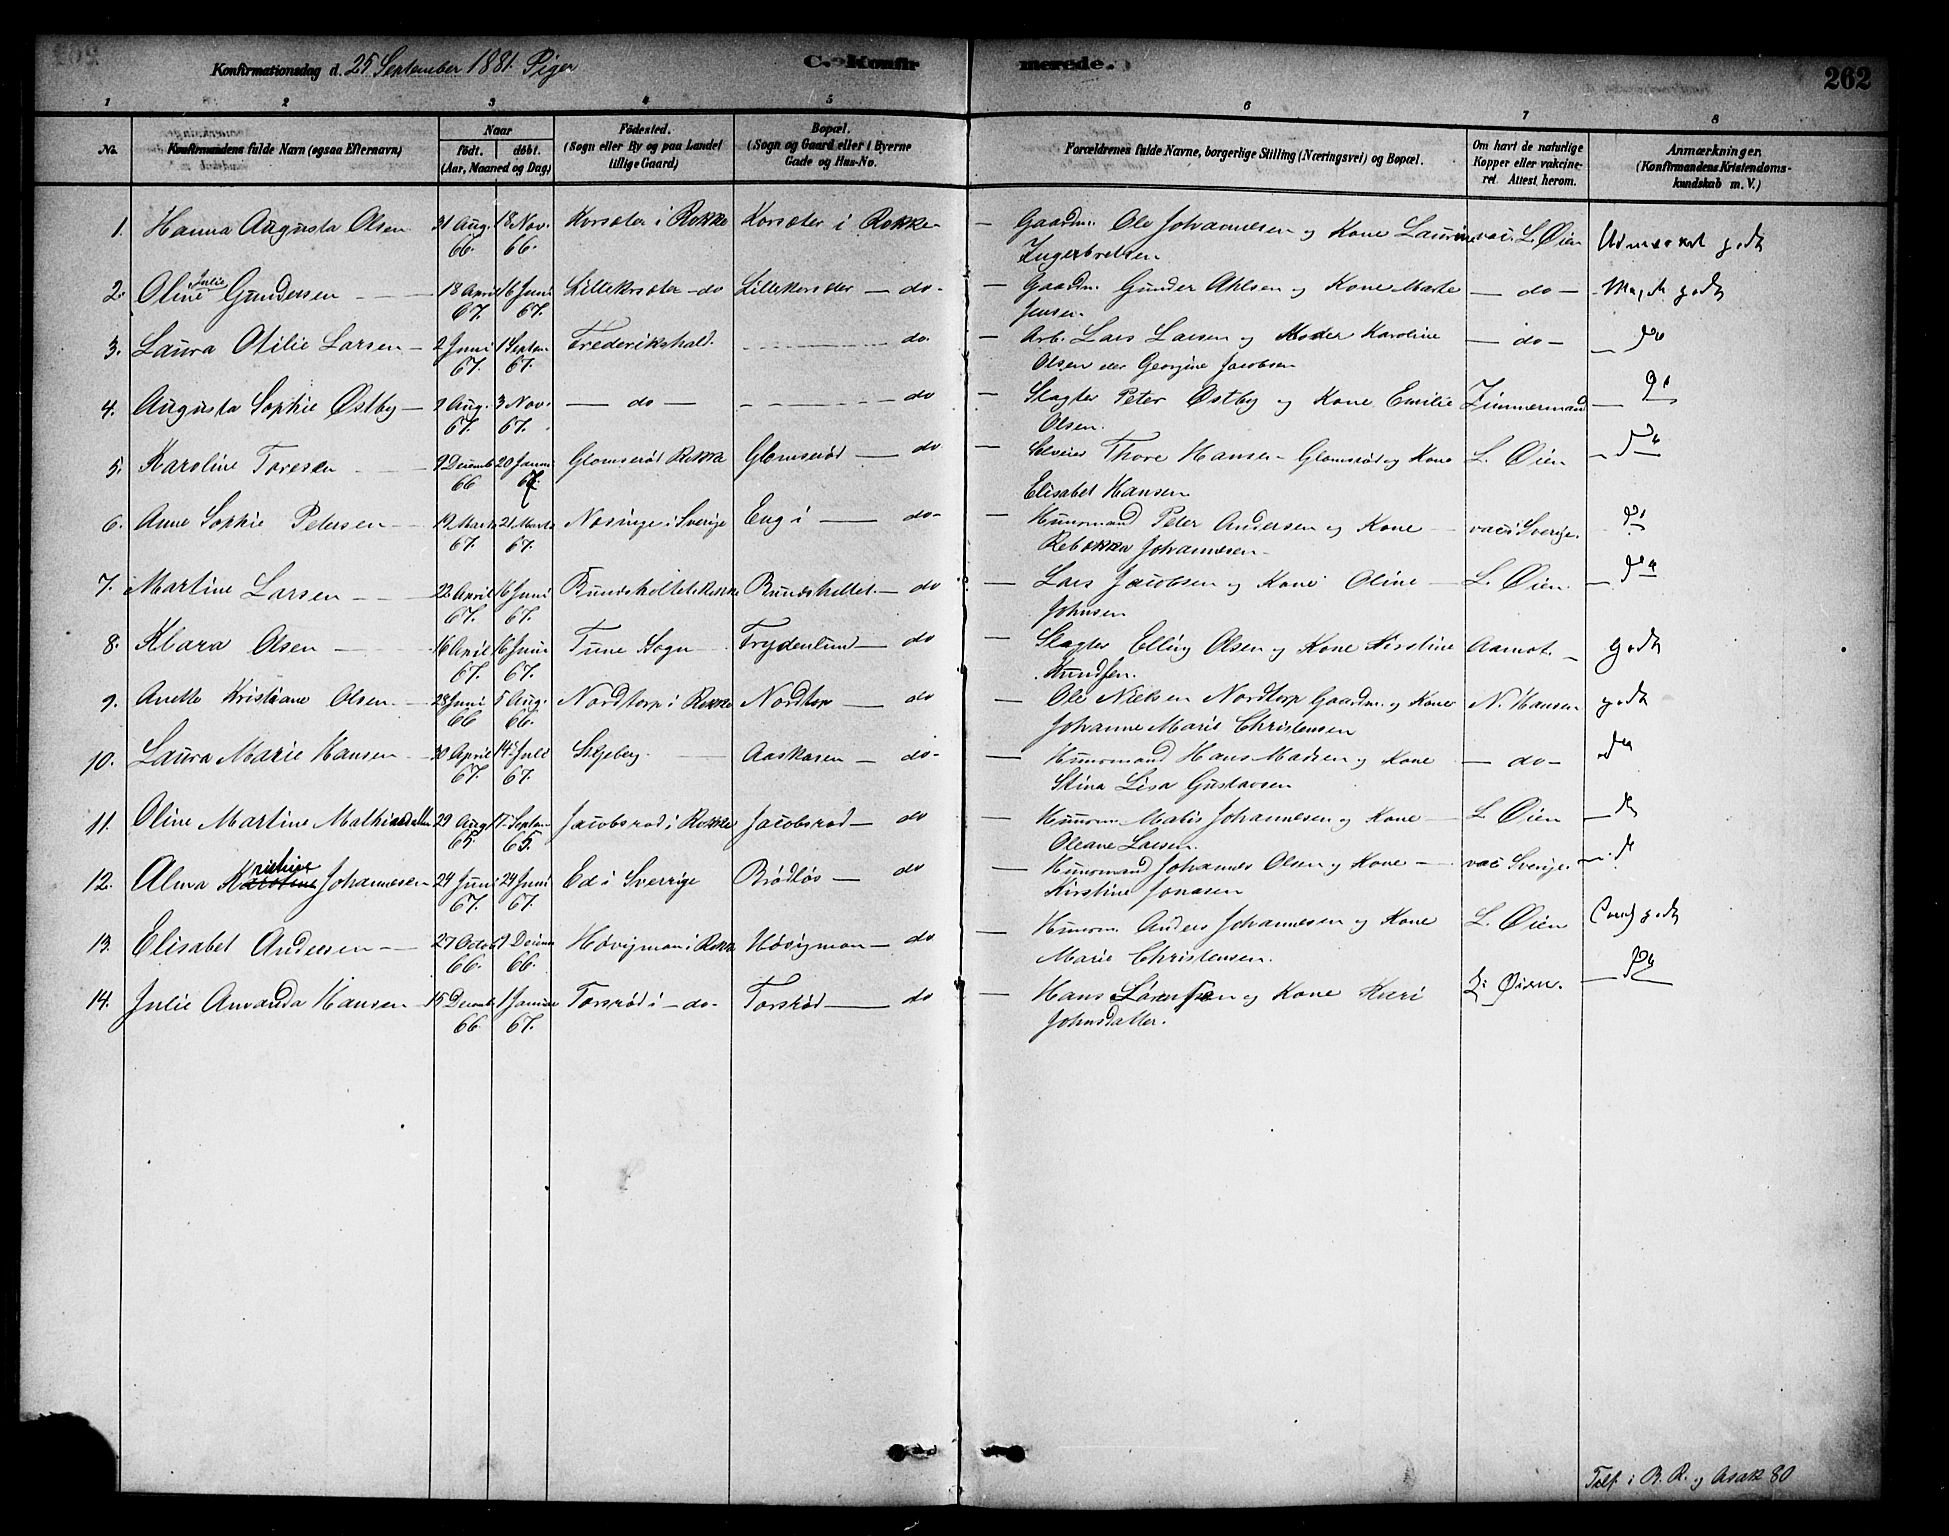 Konfirmationsdag d. 25 September 1881. Piger C. Konfirmerede. 262
1 2 3 4 5 6 7 8
No. Konfirmandens fulde Navn (ogsaa Efternavn) Naar født. døbt. (Aar, Maaned og Dag) Fødested. (Sogn eller By og paa Landet tillige Gaard) Bopæl. (Sogn og Gaard eller i Byerne Gade og Hus-No. Forældrenes fulde Navne, borgerlige Stilling (Næringsvei) og Bopæl. Om havt de naturlige Kopper eller vakcineret. Attest herom. Anmærkninger. (Konfirmandens Kristendomskundskab m. V.)
1. Hanna Augusta Olsen 31 Aug. 66. 18 Nov. 66. Korsæter i Rokke Korsæter i Rokke — Gaardm. Ole Johannesen og Kone Laurine L. Øien Udmærket godt
Ingebretsen
2. Oline Julie Gundersen — 18 April 67. 16 Juni 67. Lillekorsæter – do Lillekorsæter — do – — Gaardm. Gunder Ahlsen og Kone Marte — do — Meget godt
Jensen.
3. Laura Otilie Larsen — 2 Juni 67. 1 Septem 67. Frederikshald. do. — Arb. Lars Larsen og Moder Karoline — do — — do
Olsen eller Georgine Jacobsen
4. Augusta Sophie Østby — 9 Aug. 67. 3 Nov. 67. — do — do — Slagter Peter Østby og Kone Emilie Zimmermand —
Olsen.
5. Karoline Toresen 9 Decemb 66 20 Janu 67. Glomserød Rokke Glomserød — do — Selveier Thore Hansen Glomsrød og Kone L. Øien
Elisabet Hansen
6. Anne Sophie Petersen — 19 Marts 67. 21 Marts 67. Nösinge i Sverige Eng i — do — — Husmand Peter Andersen og Kone — vac i Sverige.
Rebekka Johannesen —
7. Martine Larsen — 22 April 67. 16 Juni 67. Bundsholtet Rokke Bundsholtet. — do — Lars Jacobsen og Kone Oline — L. Øien
Johnsen
8. Klara Olsen — 16 April 67. 16 Juni 67. Tune Sogn Frydenlund — do — Slagter Elling Olsen og Kone Kirstine Aamot. — godt
Knudsen.
9. Anette Kristiane Olsen. — 28 Juni 66 5 Aug. 66. Nordtorp i Rokke Nordtorp — do — Ole Nielsen Nordtorp Gaardm. og Kone N. Hansen godt
Johanne Marie Christensen
10. Laura Marie Hansen — 30 April 67. 14 Juli 67. Skjeberg. Aaskasen — do – — Husmand Hans Madsen og Kone — do —
Stina Lisa Gustavsen
11. Oline Martine Mathisdatter 29 Aug 65. 17 Septem 65. Jacobsrød i Rokke Jacobsrød — do — Husm. Matis Johannesen og Kone — L. Øien
Oleane Larsen.
12. Alma Johannesen 24 Juni 67. 24 Juni 67. Ed i Sverrige Brödløs — do — Husmand Johannes Olsen og Kone — vac i Sverige.
Kirstine Jonasen
13. Elisabet Andersen — 27 Octob 66. 9 Decem 66. Høvigmon i Rokke Høvigmon — do — Husm. Anders Johannesen og Kone L. Øien godt
Marie Christensen.
14. Julie Amanda Hansen 15 Decemb 66 1 Januar 67. Torsrød i — do — Torsrød — do — Hans Sørensen og Kone Kari L. Øien.
Johnsdatter.
i B. R. og Asak 80